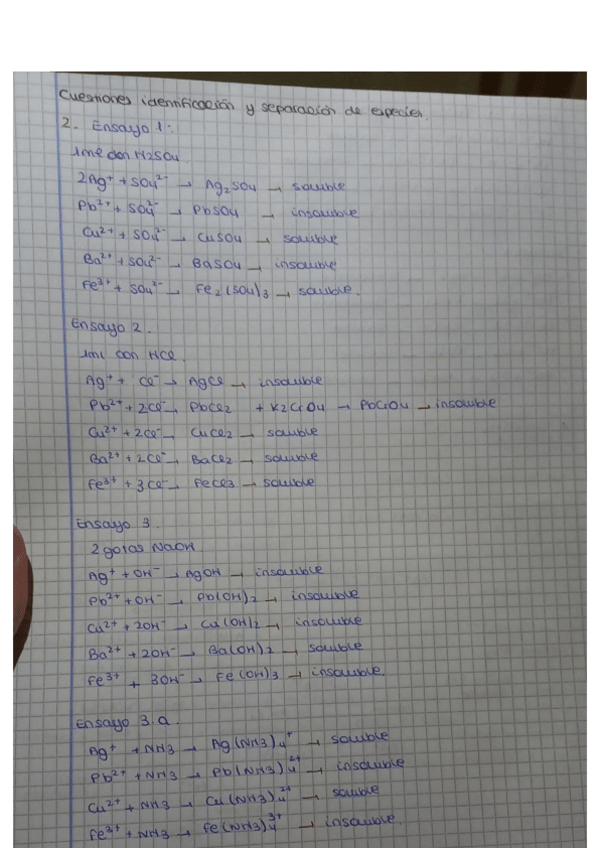 Cuestiones identificación y separación de especies.
2. Ensayo 1:
1ml con H2SO4
2Ag⁺ + SO4²⁻ → Ag2SO4 → soluble
Pb²⁺ + SO4²⁻ → PbSO4 → insoluble
Cu²⁺ + SO4²⁻ → CuSO4 → soluble
Ba²⁺ + SO4²⁻ → BaSO4 → insoluble
Fe³⁺ + SO4²⁻ → Fe2(SO4)3 → soluble.
Ensayo 2.
1ml con HCl.
Ag⁺ + Cl⁻ → AgCl → insoluble
Pb²⁺ + 2Cl⁻ → PbCl2 + K2CrO4 → PbCrO4 → insoluble
Cu²⁺ + 2Cl⁻ → CuCl2 → soluble
Ba²⁺ + 2Cl⁻ → BaCl2 → soluble
Fe³⁺ + 3Cl⁻ → FeCl3 → soluble
Ensayo 3.
2 gotas NaOH
Ag⁺ + OH⁻ → AgOH → insoluble
Pb²⁺ + OH⁻ → Pb(OH)2 → insoluble
Cu²⁺ + 2OH⁻ → Cu(OH)2 → insoluble
Ba²⁺ + 2OH⁻ → Ba(OH)2 → soluble
Fe³⁺ + 3OH⁻ → Fe(OH)3 → insoluble.
Ensayo 3.a
Ag⁺ + NH3 → Ag(NH3)4⁺ → soluble
Pb²⁺ + NH3 → Pb(NH3)4²⁺ → insoluble
Cu²⁺ + NH3 → Cu(NH3)4²⁺ → soluble
Fe³⁺ + NH3 → Fe(NH3)4³⁺ → insoluble.